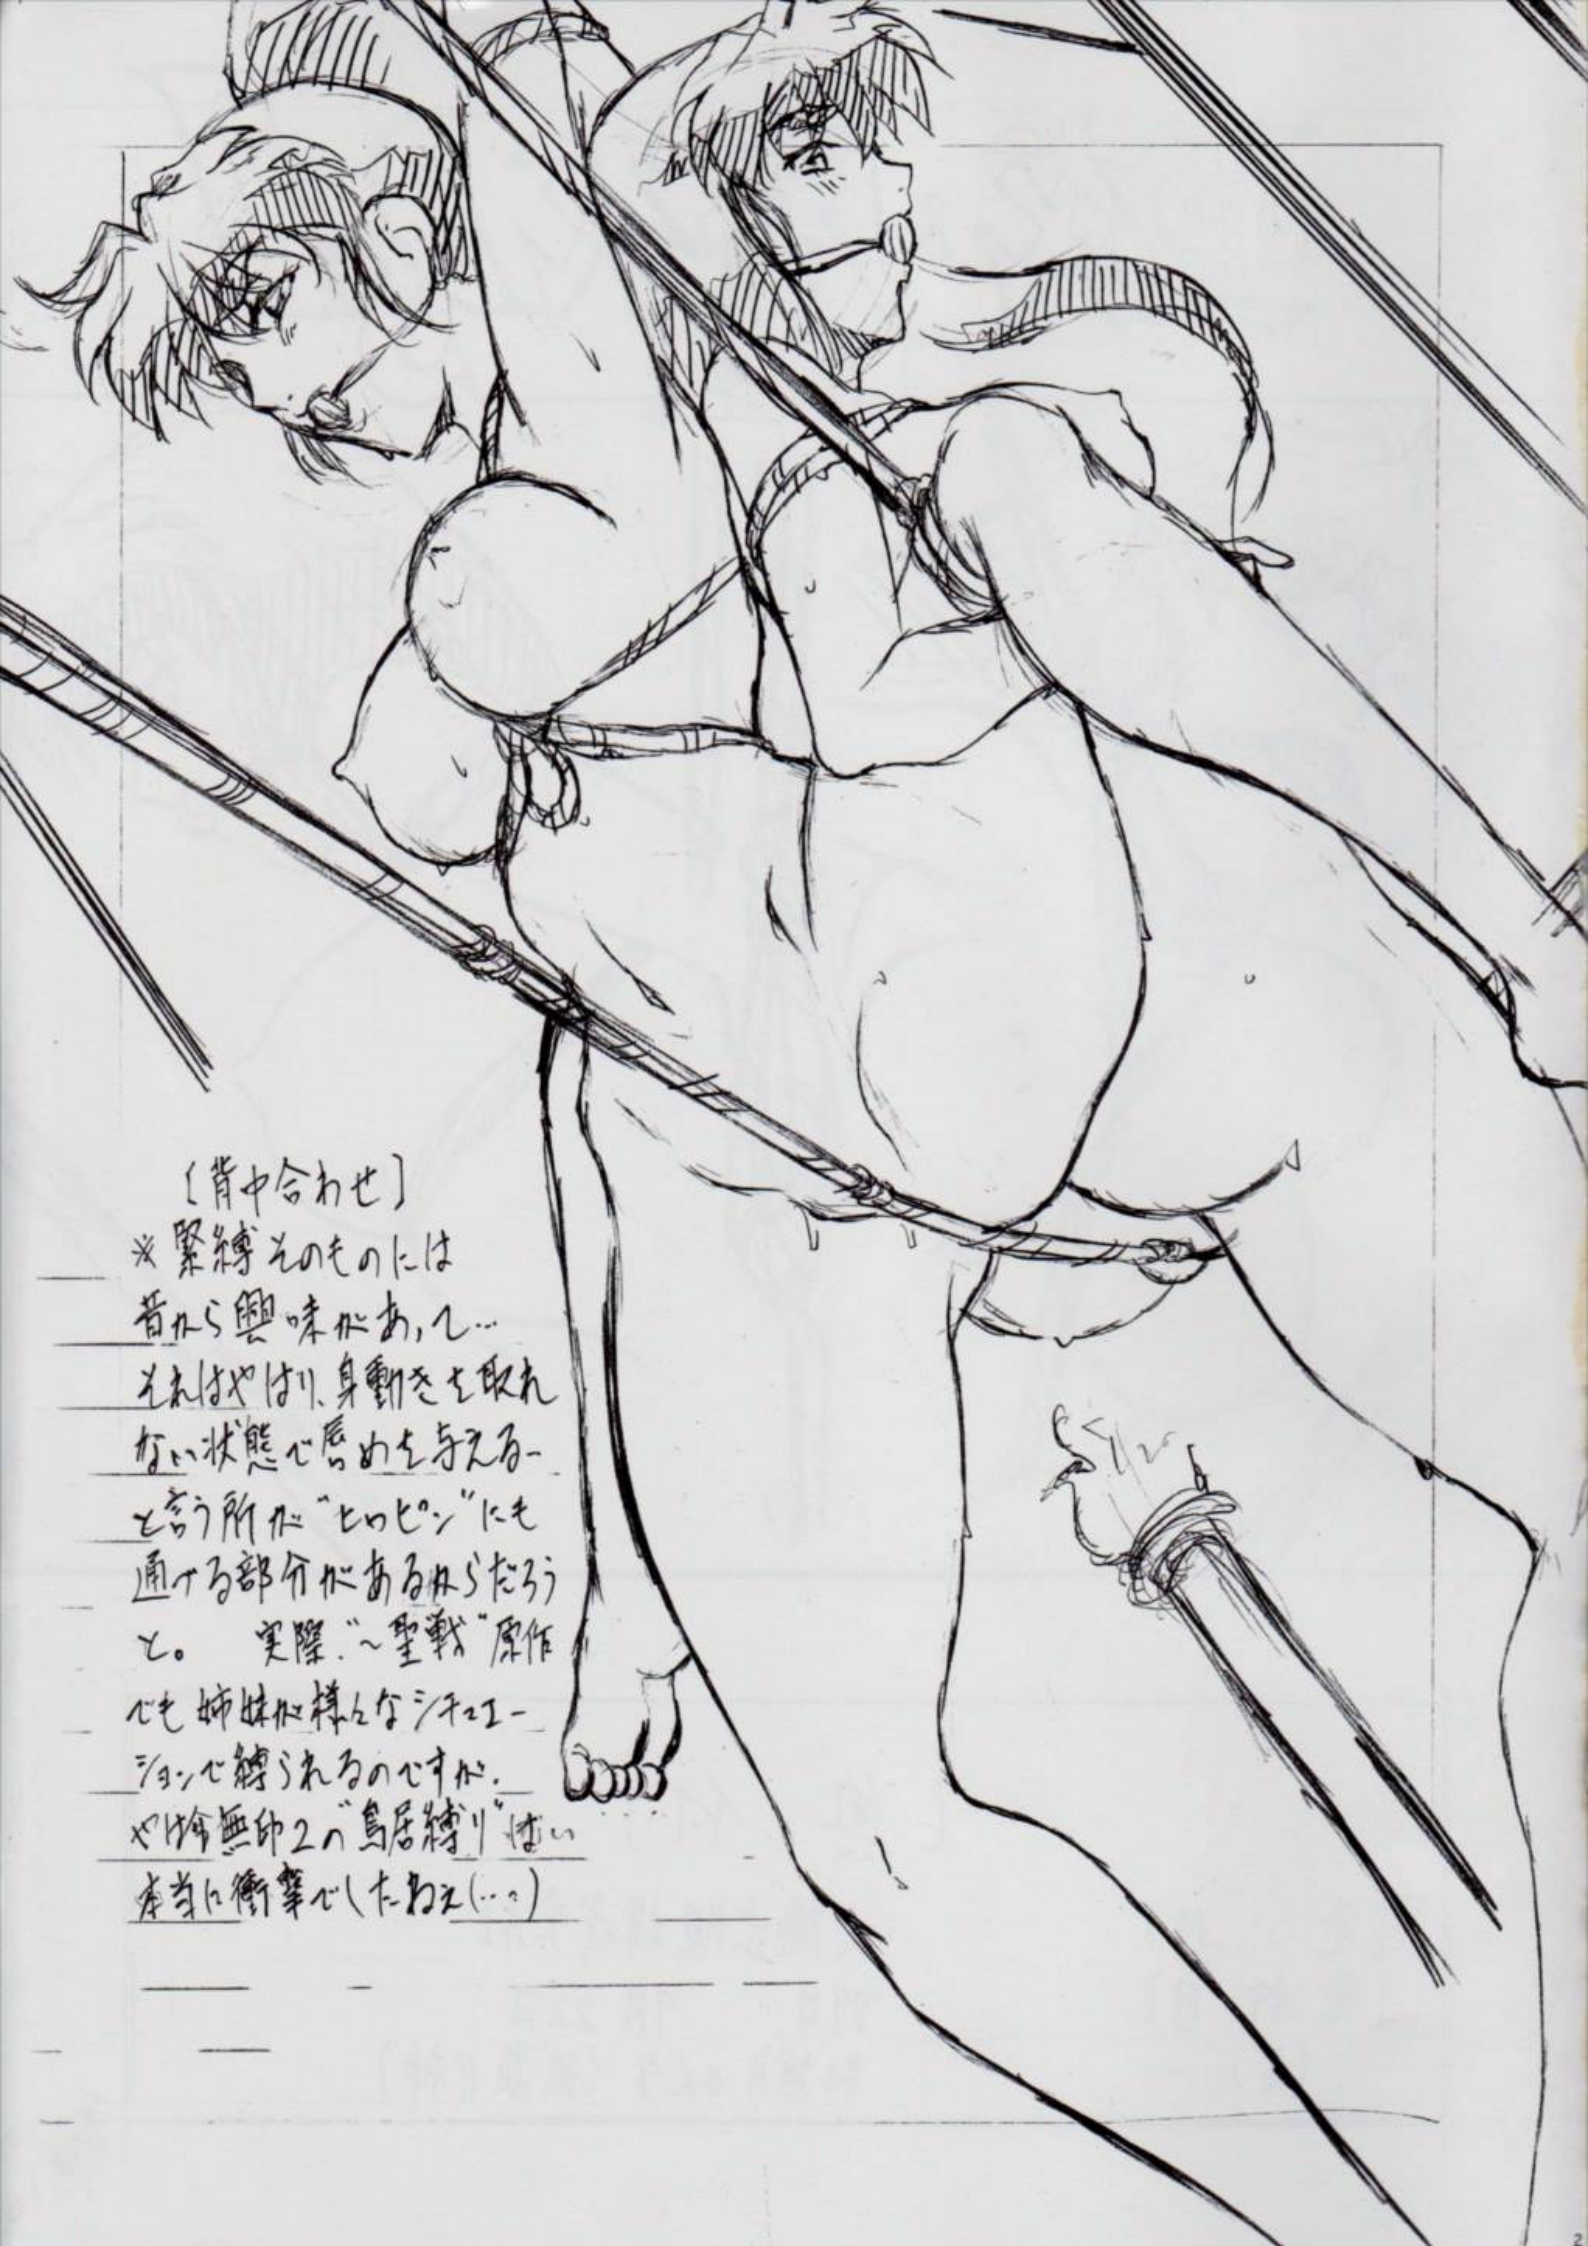 〔背中合わせ〕
※緊縛そのものには
昔から興味があって…
それはやはり、身動きを取れ
ない状態で辱めを与える-
と言う所が"ヒロピン"にも
通ずる部分があるからだろう
と。 実際"～聖戦"原作
でも姉妹が様々なシチュエー
ションで縛られるのですが、
無印2の"鳥居縛り"は
本当に衝撃でしたねぇ(…
2